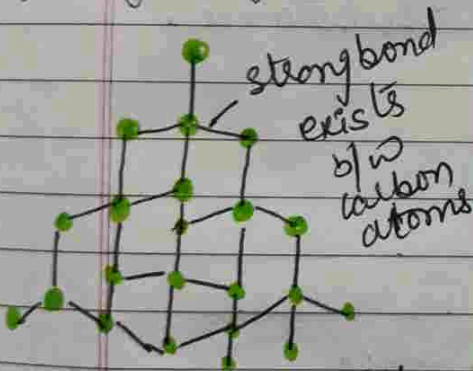 strong bond
exists
b/w
carbon
atoms